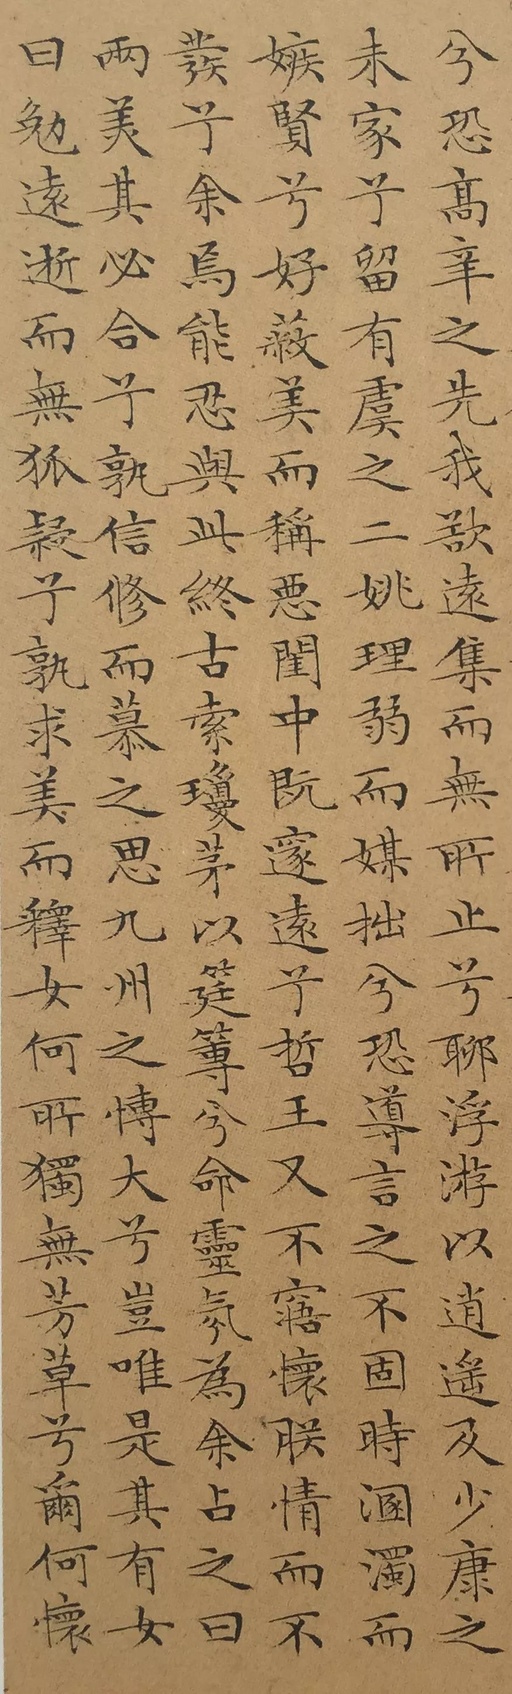 兮恐高辛之先我欲遠集而無所止兮聊浮游以逍遙及少康之
未家兮留有虞之二姚理弱而媒拙兮恐導言之不固時溷濁而
嫉賢兮好蔽美而稱惡閨中既邃遠兮哲王又不寤懷朕情而不
發兮余焉能忍與此終古索瓊茅以筳篿兮命靈氛為余占之曰
兩美其必合兮孰信修而慕之思九州之博大兮豈唯是其有女
曰勉遠逝而無狐疑兮孰求美而釋女何所獨無芳草兮爾何懷